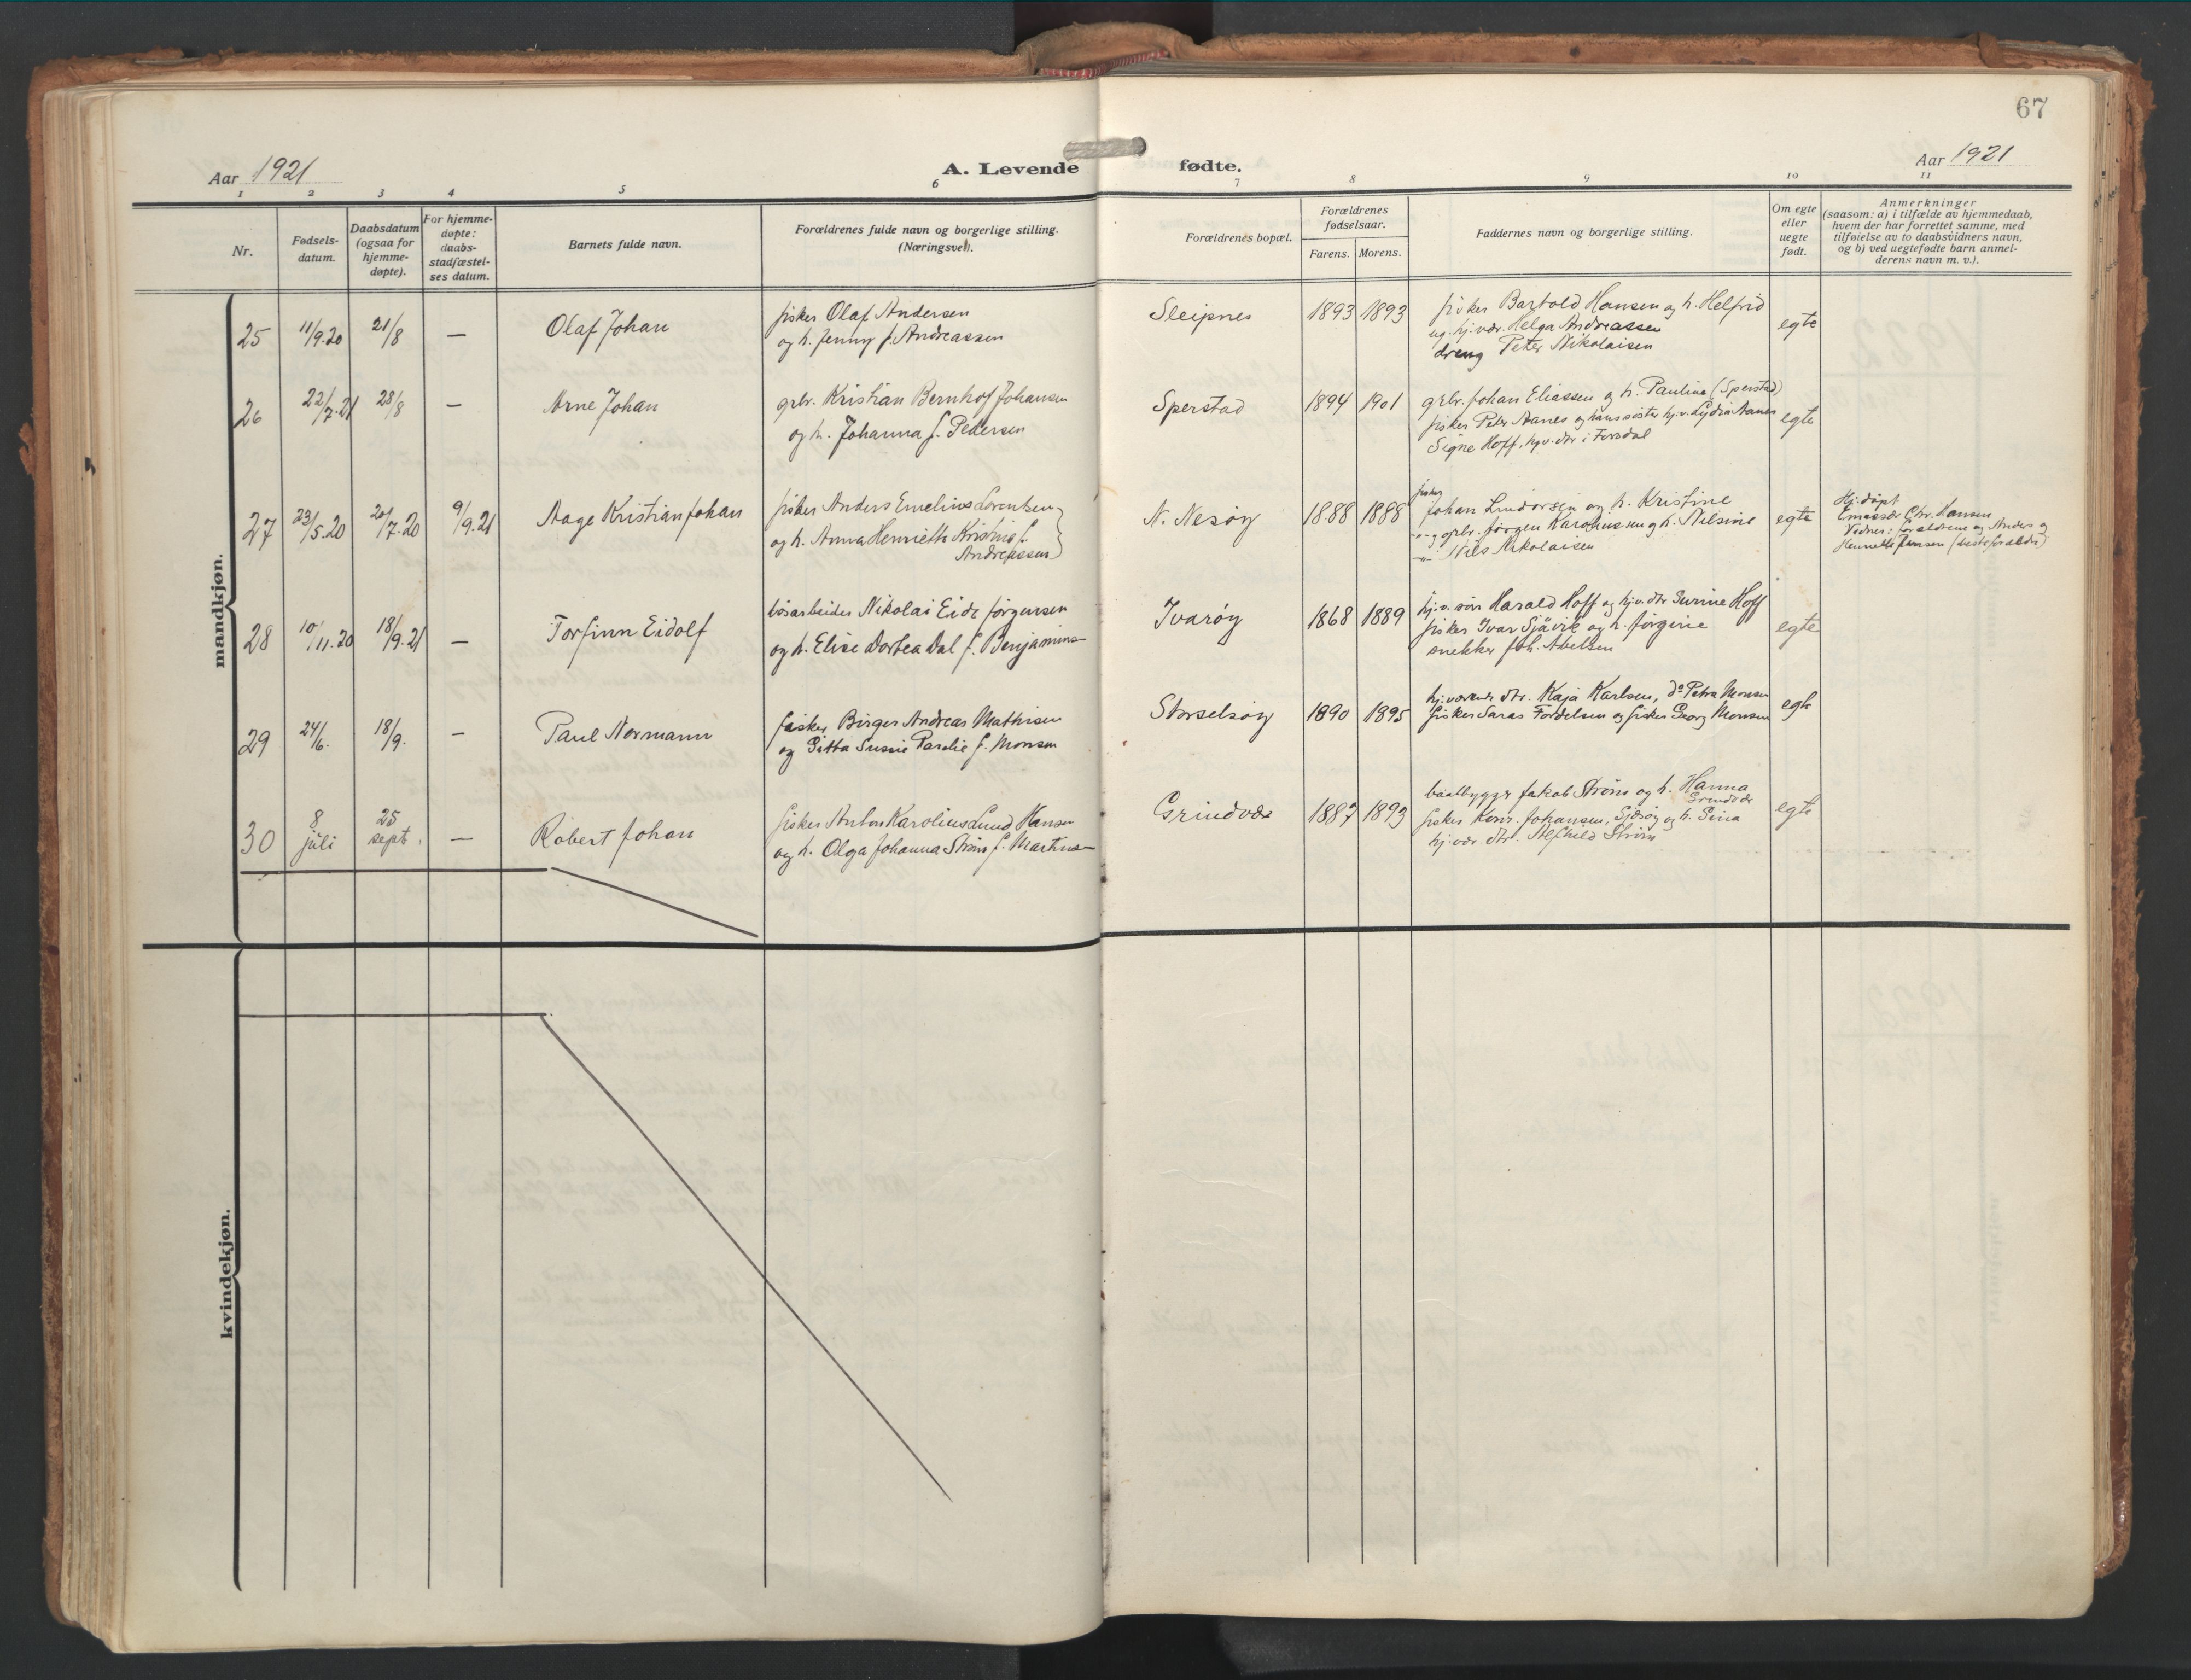 67
Aar 1921
A. Levende fødte.
Aar 1921
1 2 3 4 5 6 7 8 9 10 11
Nr.
Fødsels-
datum.
Daabsdatum
(ogsaa for
hjemme-
døpte).
For hjemme-
døpte:
daabs-
stadfæstel-
ses datum.
Barnets fulde navn.
Forældrenes fulde navn og borgerlige stilling.
(Næringsvei).
Forældrenes bopæl.
Forældrenes
fødselsaar.
Farens. Morens.
Faddernes navn og borgerlige stilling.
Om egte
eller
uegte
født.
Anmerkninger
(saasom: a) i tilfælde av hjemmedaab,
hvem der har forrettet samme, med
tilføielse av to daabsvidners navn,
og b) ved uegtefødte barn anmel-
derens navn m. v.).
mandkjøn.
25 11/9.20 21/8 — Olaf Johan
fisker Olaf Andersen
og h. Jenny f. Andreassen
Sleipnes 1893 1893
fisker Bartold Hansen og h. Helfrid
ug. hj.vær. Helga Andreassen
dreng Peter Nikolaisen
egte
26 22/7.21 28/8 — Arne Johan
grbr. Kristian Bernhof Johansen
og h. Johanna f. Pedersen
Sperstad 1894 1901
grbr. Johan Eliassen og h. Pauline (Sperstad)
fisker Peter Aanes og hans søster hj.v. Lydia Aanes
Signe Hoff, hj.v. dtr i Forsdal
egte
27 23/5.20 20/7.20 9/9.21 Aage Kristian Johan
fisker Anders Emelius Lorentsen
og h. Anna Henriette Kristine f.
Andreassen
N. Nesøy 1888 1888
fisker
Johan Lindorsen og h. Kristine
-"- og grbr. Jørgen Karoliussen og h. Nilsine
-"- Nils Nikolaisen
egte
Hj.døpt
Emissær Chr. Hansen
Vidner: forældrene og Anders og
Henriette Jensen (besteforældre)
28 10/11.20 18/9.21 — Torfinn Eidolf
løsarbeider Nikolai Eide Jørgensen
og h. Elise Dortea Dal f. Benjamins-
Ivarøy 1868 1889
hj.v. søn Harald Hoff og hj.v. dtr Surine Hoff
fisker Ivar Sjåvik og h. Jørgine
snekker Joh. Abelsen
egte
29 24/6. 18/9. — Paul Normann
fisker Birger Andreas Mathisen
og Gitta Sussie Parelie f. Monsen
Storselsøy 1890 1895
hj.værende dtr. Kaja Karlsen, do Petra Monsen
fisker Saras Fordelsen og fisker Georg Monsen
egte
30 8 juli 25 sept. — Robert Johan
fisker Anton Karolius Lund Hansen
og h. Olga Johanna Strøm f. Martins-
Grindvær 1887 1893
baatbygger Jakob Strøm og h. Hanna
Grindvær
fisker Konr. Johansen, Sjøsøy og h. Sina
hj.vær dtr. Alfhild Strøm
egte
kvindekjøn.